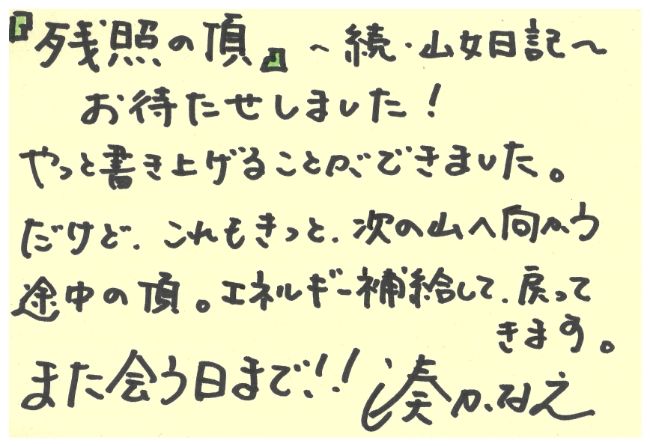 『残照の頂』～続・山女日記～
お待たせしました！
やっと書き上げることができました。
だけど、これもきっと、次の山へ向かう
途中の頂。エネルギー補給して、戻って
きます。
また会う日まで！！ 湊かなえ